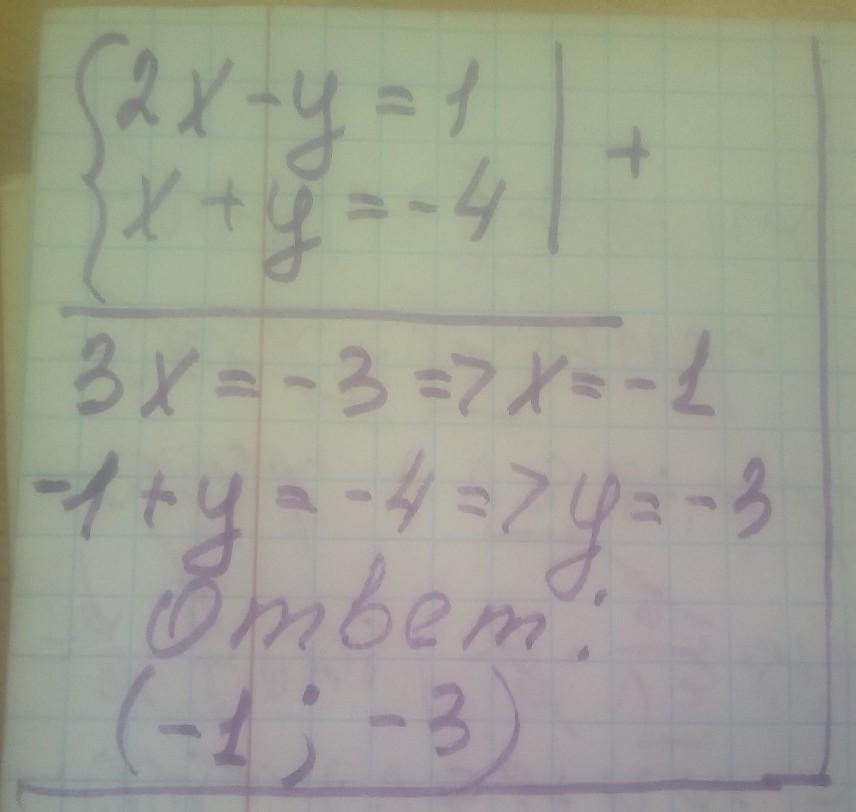 {2x-y=1 | +
x+y=-4
3x=-3=>x=-1
-1+y=-4=>y=-3
Ответ:
(-1; -3)